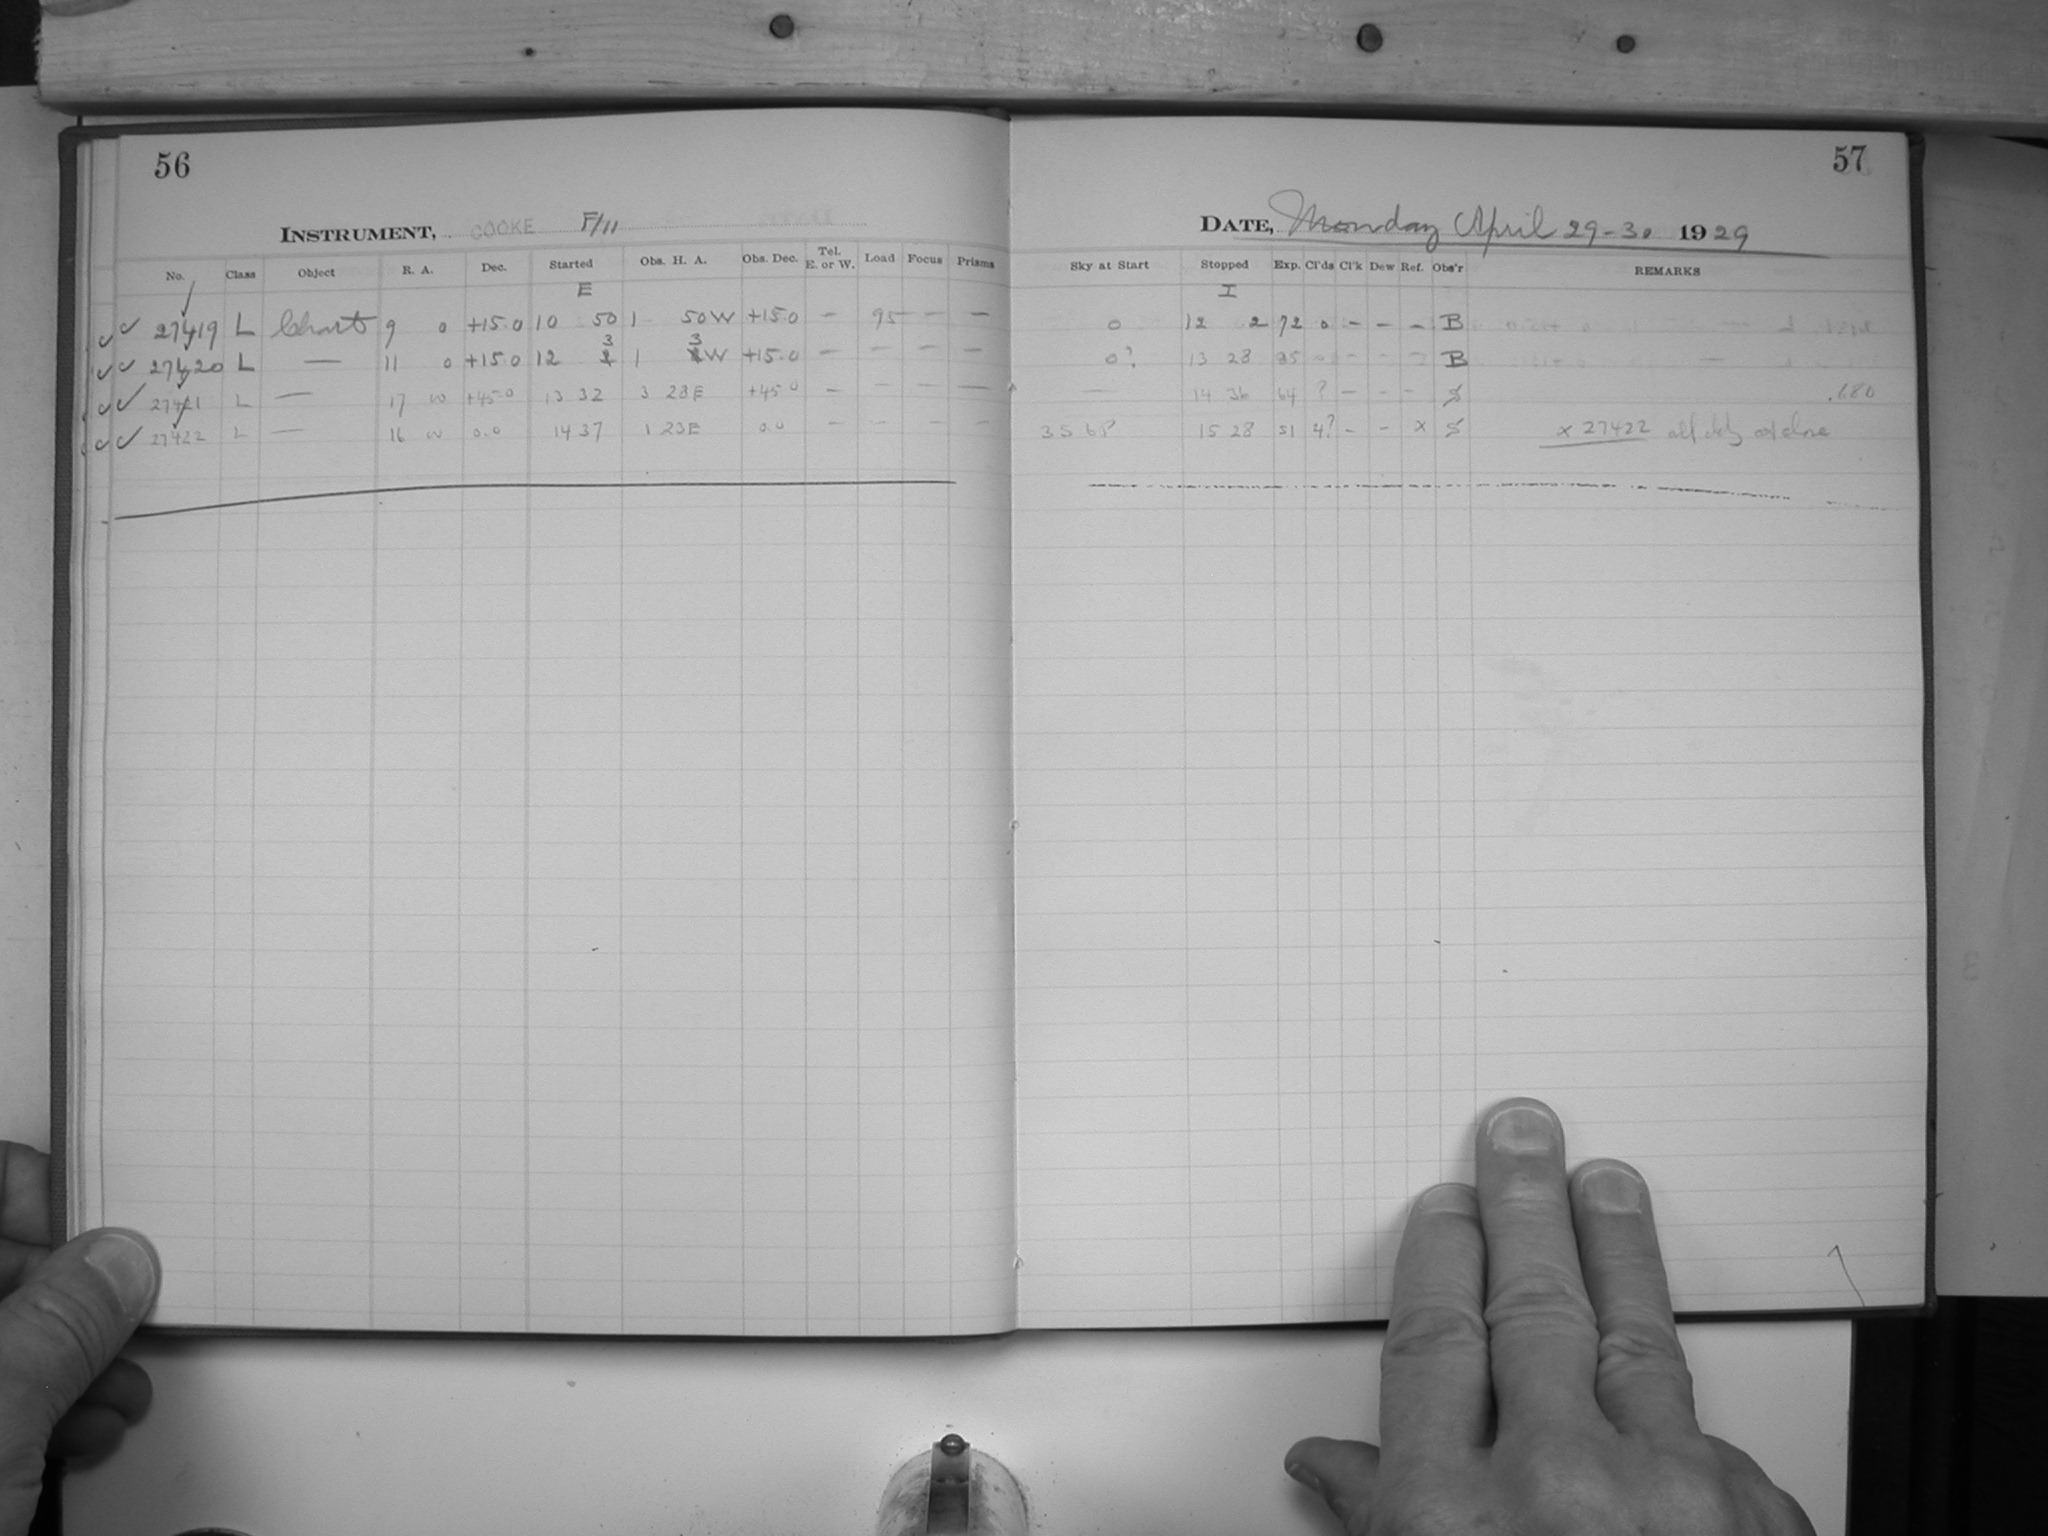 56
INSTRUMENT, COOKE F/11
No. Class Object R. A. Dec. Started Obs. H. A. Obs. Dec. Tel. E. or W. Load Focus Prisms
E
27419 L Chart 9 0 +15.0 10 50 1 50W +15.0 - 95 - -
27420 L — 11 0 +15.0 12 3 1 3W +15.0 - - - -
27421 L — 17 0 +45.0 13 32 3 28E +45.0 - - - -
27422 L — 16 0 0.0 14 37 1 23E 0.0 - - - -
57
DATE, Monday April 29-30 1929
Sky at Start Stopped Exp. Cl'ds Cl'k Dew Ref. Obs'r REMARKS
I
0 12 2 72 0 - - - B
0? 13 28 85 0 - - - B
— 14 36 64 ? - - - S .680
3 5 6P 15 28 51 4? - - x S x 27422 at close